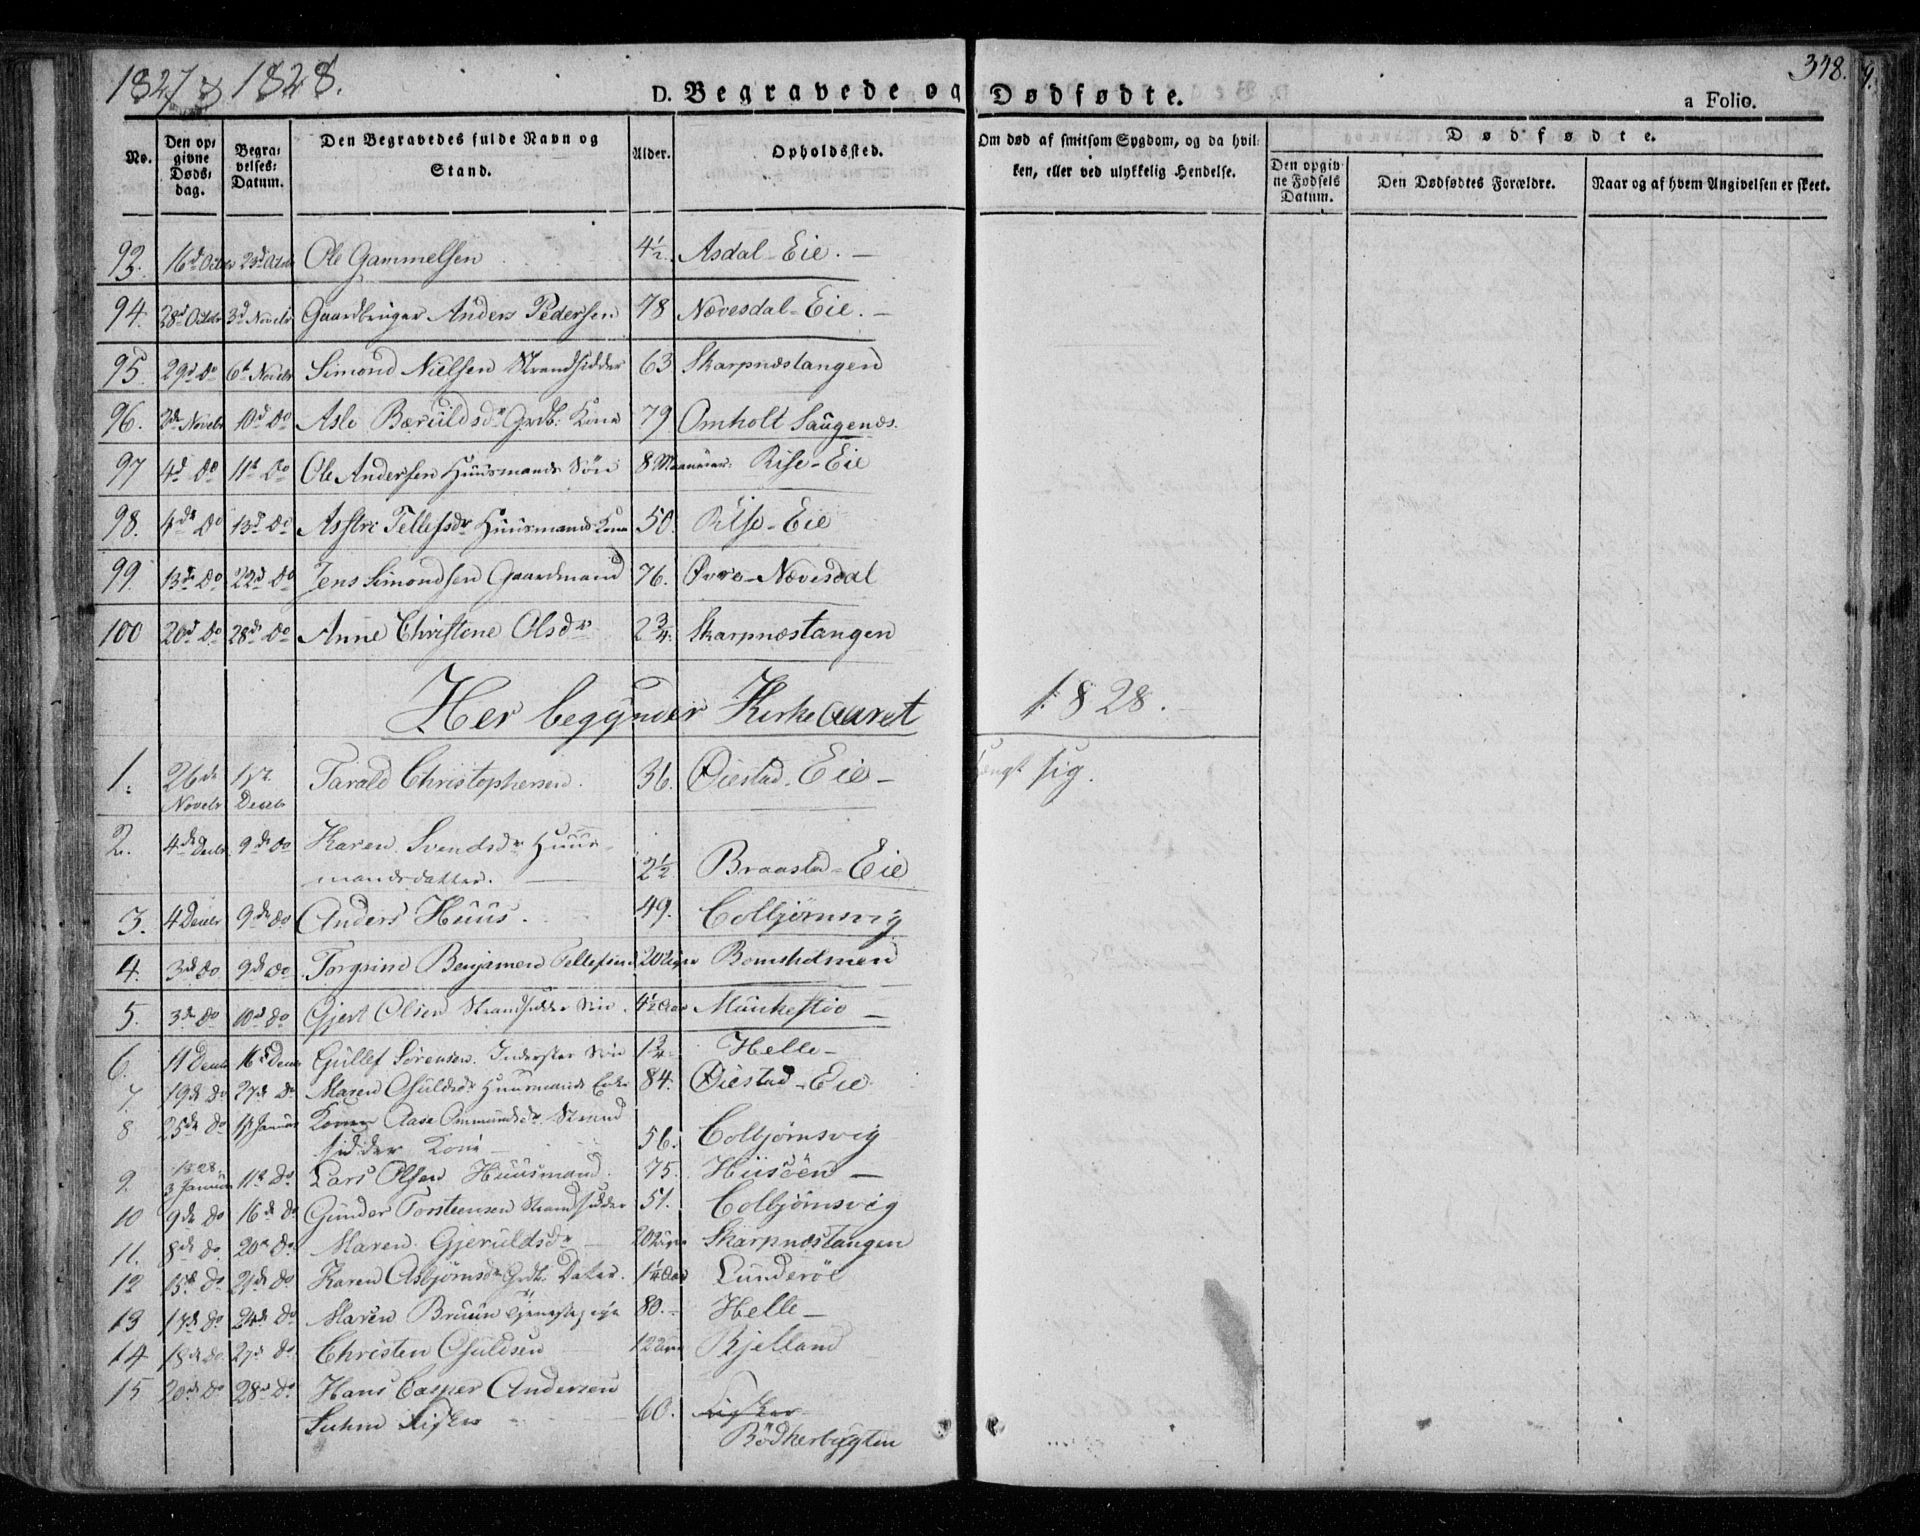 1827 & 1828.
348.
D. Begravede og Dødfødte.
a Folio.
No.
Den opgivne Dødsdag.
Begravelses-Datum.
Den Begravedes fulde Navn og Stand.
Alder.
Opholdssted.
Om død af smitsom Sygdom, og da hvilken, eller ved ulykkelig Hendelse.
Dødfødte.
Den opgivne Fødsels Datum.
Den Dødfødtes Forældre.
Naar og af hvem Angivelsen er skeet.
93. 16d Octbr 23d Octbr Ole Gammelsen 4½. Asdal-Eie. —
94. 28d Octbr 3d Novebr Gaardbruger Anders Pedersen 78 Nævesdal-Eie. —
95. 29d do 6t Novebr Simond Nielsen Strandsidder 63 Skarpnæstangen
96. 3de Novebr 10d do Asle Bærulds dr Grdb: Kone 79. Omholt Saugenæs.
97 4d do 11t do Ole Andersen Huusmands Søn 8 Maaneder: Rise-Eie
98. 4de do 13d do Asstri Tellefsdr Huusmands Kone 50. Rise-Eie
99. 13de do 22d do Jens Simondsen Gaardmand 76. Øvre-Nævesdal
100 20d do 28de do Anne Christene Olsdr 2¾. Skarpnæstangen
Her begynder Kirkeaaret 1828.
1. 26de Novebr 1ste Deceb Tarald Christophersen. 36. Øiestad-Eie — hængt sig.
2. 4de Decbr 9de do Karen Svendsdr Huus-
mandsdatter. — 2½ Braastad-Eie
3. 4 Decebr 9de do Anders Huus. 49. Colbjørnsvig
4. 3de do 9de do Torgrine Benjamen Tellefsen 20 Uger Bomsholmen
5. 3de do 10d do Gjert Olsen Strandsidder Søn. 4½ Aar Munkestø —
6. 11 Deceb 16d Deceb Gullef Sørensen. Inderster Søn 1¾. Helle —
7. 19de do 27de do Maren Osuldsdr Huusmands Enke 84. Øiestad-Eie.
8 25de do 1st Januar Konen Aase Ommundsdr Strand
sidder Kone — 56. Colbjørnsvig
9. 1828 3 Januar 11te do Lars Olsen Huusmand. 75. Hiisøen —
10 9de do 16de do Gunder Torsteensen Strandsidder 51. Colbjørnsvig
11. 8de do 20de do. Maren Gjeruldsdr — 20 Uger Skarpnæstangen
12 15de do 21de do Karen Asbjørnsdr Grdb. Datter. 1¼ Aar Lunderöe
13 17de do 24de do Maren Bruun 80. — Helle —
14 18de do. 27de do Christen Osuldsen — 12 Bjelland
15 20de do 28de do Hans Casper Andersen
Suhm Fisker 60. Fisker
Bödkerbugten